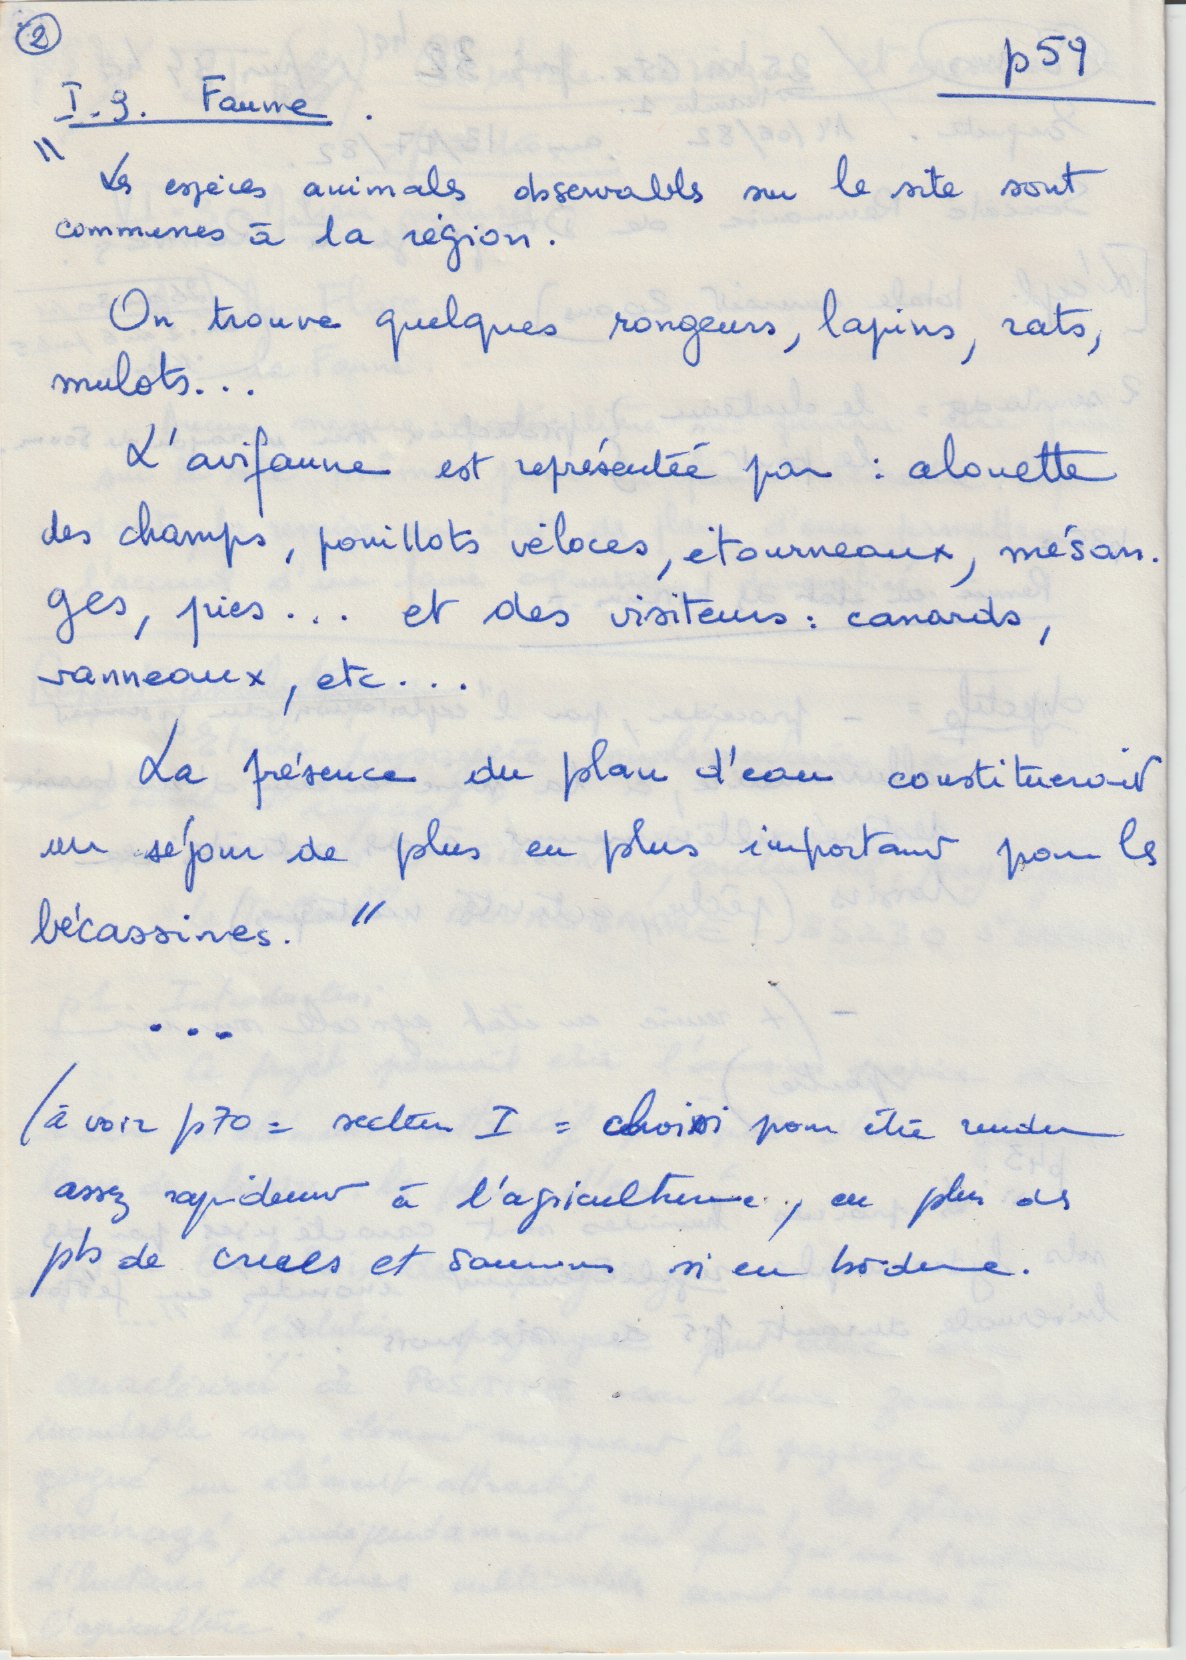 2
p59
I.3. Faune.
" Les espèces animales observables sur le site sont
communes à la région.
On trouve quelques rongeurs, lapins, rats,
mulots...
L'avifaune est représentée par : alouette
des champs, pouillots véloces, étourneaux, mésan-
ges, pies... et des visiteurs : canards,
vanneaux, etc...
La présence du plan d'eau constituerait
un séjour de plus en plus important pour les
bécassines. "
...
(à voir p70 = secteur I = choisi pour être rendu
assez rapidement à l'agriculture, en plus des
pbs de crues et si en bordure.